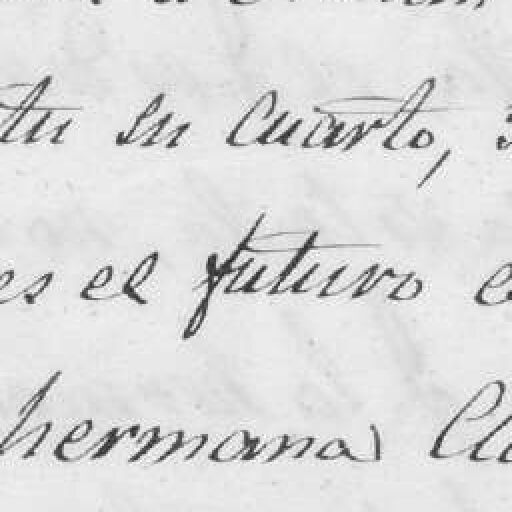 su cuarto,
es el futuro
hermana